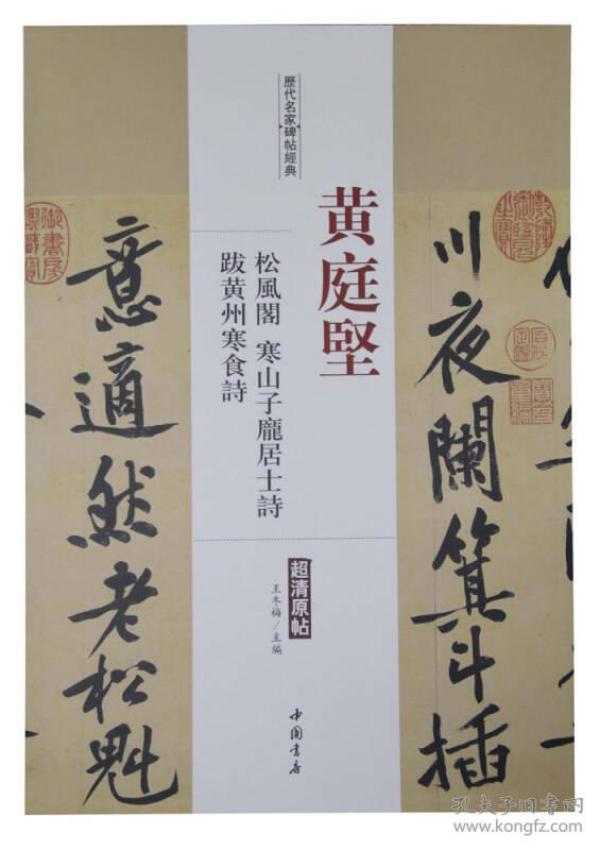 川夜闌箕斗插
歷代名家碑帖經典
黄庭堅
松風閣 寒山子龐居士詩
跋黄州寒食詩
超清原帖
王冬梅/主編
中国書店
意適然老松魁
御書房
孔夫子旧書网
www.kongfz.com